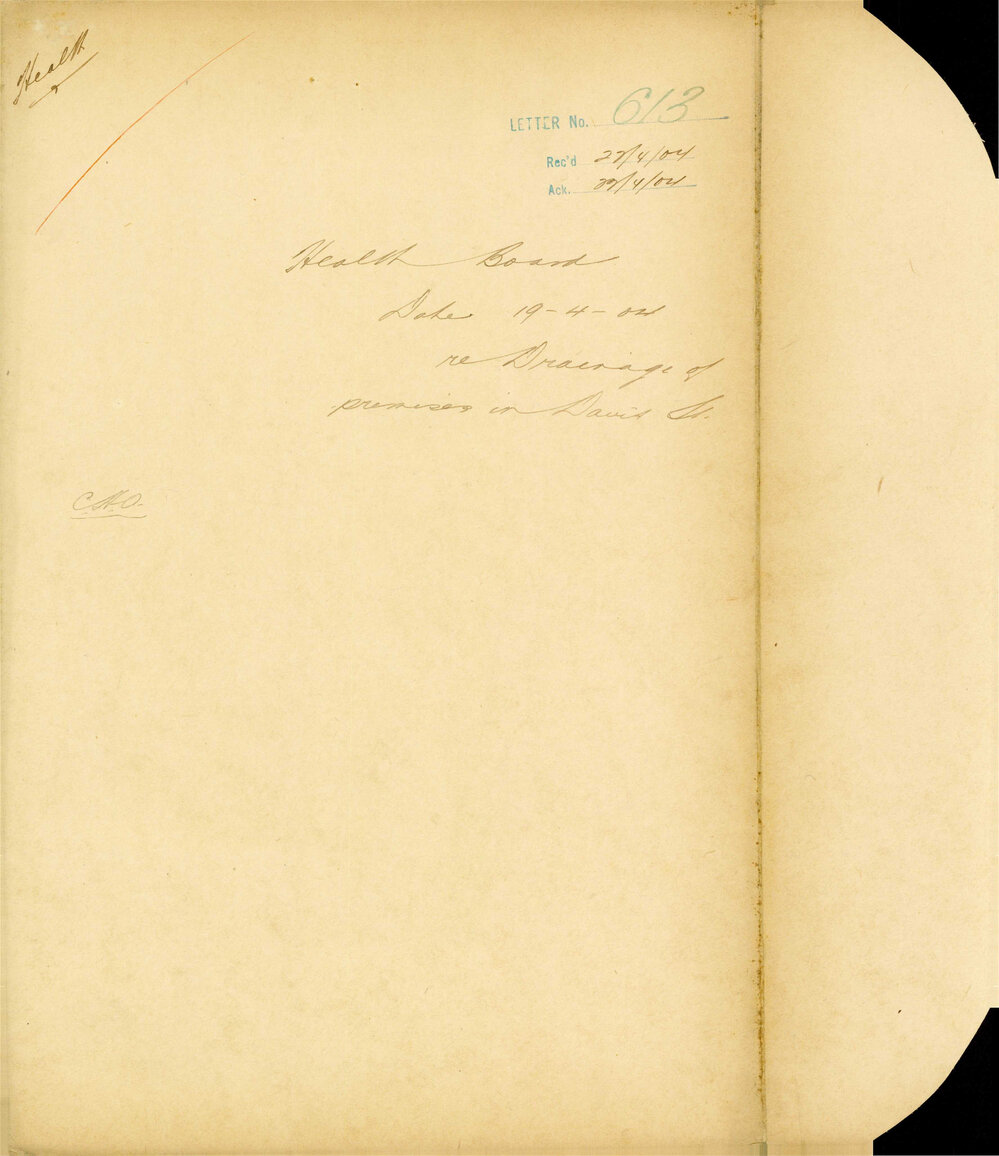 Health
LETTER No. 613
Rec'd 22/4/04
Ack. 22/4/04
Health Board
Date 19-4-04
re Drainage of
premises in David St.
C.H.O.